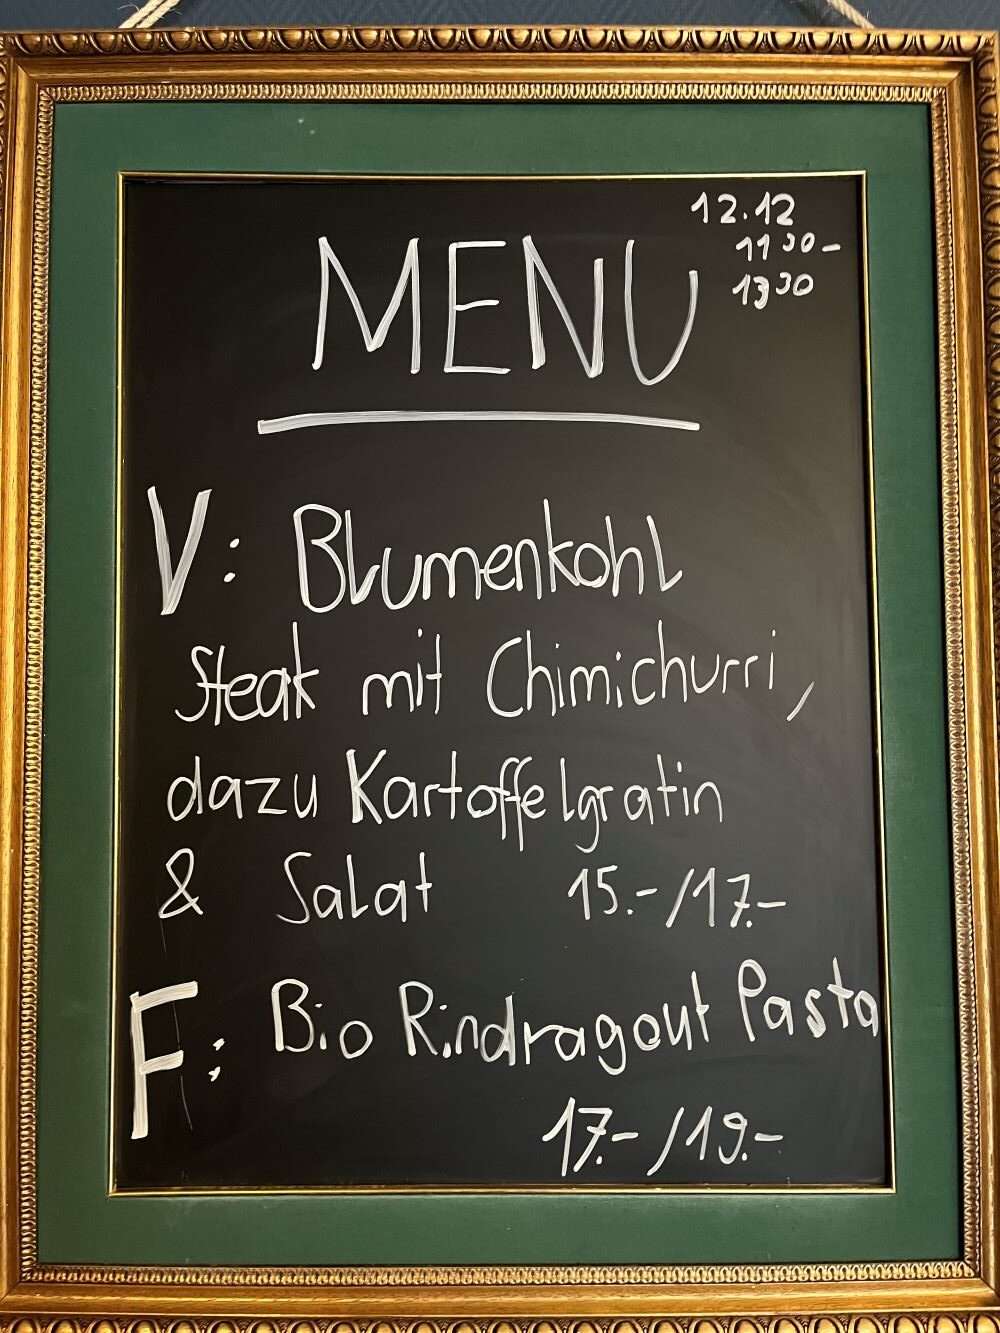 12.12
11³⁰-
13³⁰
MENU
V: Blumenkohl
Steak mit Chimichurri,
dazu Kartoffelgratin
& Salat 15.-/17.-
F: Bio Rindragout Pasta
17.-/19.-